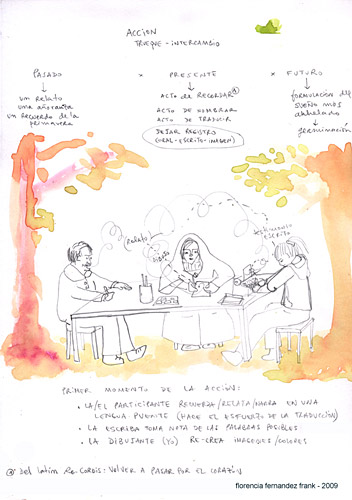 ACCION
TRUEQUE - INTERCAMBIO
PASADO x PRESENTE x FUTURO
un relato
una añoranza
un recuerdo de la
primavera
ACTO de RECORDAR @
ACTO DE NOMBRAR
ACTO DE TRADUCIR
DEJAR REGISTRO
(ORAL-ESCRITO-IMAGEN)
formulación del
sueño más
anhelado
germinación
(Relato)
testimonio
escrito
PRIMER MOMENTO DE LA ACCIÓN:
• LA/EL PARTICIPANTE RECUERDA/RELATA/NARRA EN UNA
LENGUA PUENTE (HACE EL ESFUERZO DE LA TRADUCCIÓN)
• LA ESCRIBA TOMA NOTA DE LAS PALABRAS POSIBLES
• LA DIBUJANTE (YO) RE-CREA IMAGENES/COLORES
@ Del latín Re-CORDIS: VOLVER A PASAR POR EL CORAZÓN
florencia fernandez frank - 2009